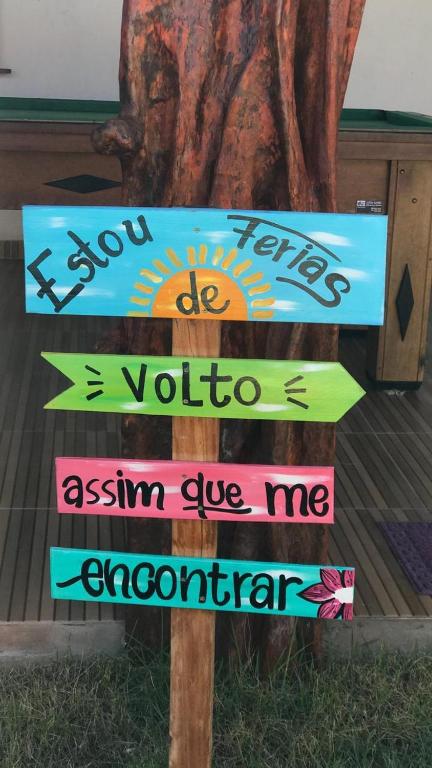 Estou de Ferias
Volto
assim que me
encontrar